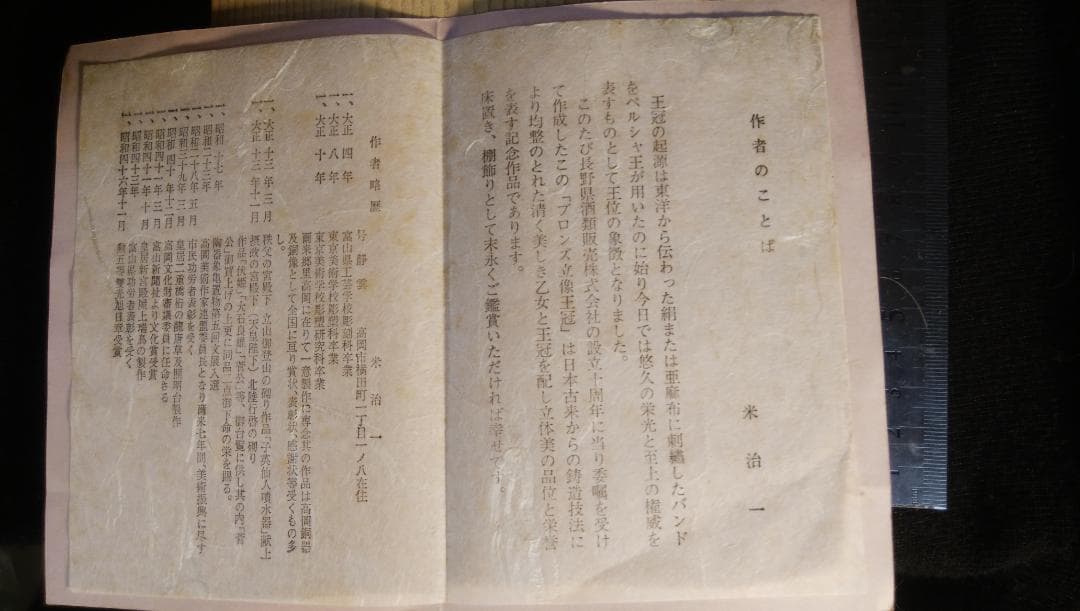 作者のことば
米治一
王冠の起源は東洋から伝わった絹または亜麻布に刺繡したバンド
をペルシャ王が用いたのに始り今日では悠久の栄光と至上の権威を
表すものとして王位の象徴となりました。
このたび長野県酒類販売株式会社の設立十周年に当り委嘱を受け
て作成したこの「ブロンズ立像王冠」は日本古来からの鋳造技法に
より均整のとれた清く美しき乙女と王冠を配し立体美の品位と栄誉
を表す記念作品であります。
床置き、棚飾りとして末永くご鑑賞いただければ幸せです。
作者略歴
米治一
号静雲 高岡市横田町一丁目一ノ八在住
一、大正四年 富山県工芸学校彫刻科卒業
一、大正八年 東京美術学校彫塑科卒業
一、大正十年 東京美術学校彫塑研究科卒業
爾来郷里高岡に在りて一意製作に専念其の作品は高岡銅器
及銅像として全国に亘り賞状、表彰状、感謝状等受くもの多
し。
一、大正十三年三月 秩父の宮殿下 立山御登山の砌り作品「子英仙人噴水器」献上
一、大正十三年十一月 摂政の宮殿下(天皇陛下)北陸行啓の砌り
作品「伏姫」「大石良雄」等、御台覧に供し其の内
公」御買上げの上更に同品二点御下命の栄を賜る。
一、昭和十七年 陶器象亀置物第五回文展入選
一、昭和二十三年 高岡美術作家連盟委員長となり爾来七年間、美術振興に尽す
一、昭和二十八年五月 市民功労者表彰を受く
一、昭和三十九年三月 皇居二重橋桁の龍唐草及照明台製作
一、昭和四十年十二月 高岡文化財審議委員に任命さる
一、昭和四十一年三月 富山新聞社より文化賞受賞
一、昭和四十一年十月 皇居新宮殿屋上瑞鳥の製作
一、昭和四十三年 富山県功労者表彰を受く
一、昭和四十六年十一月 勲五等双光旭日章受賞